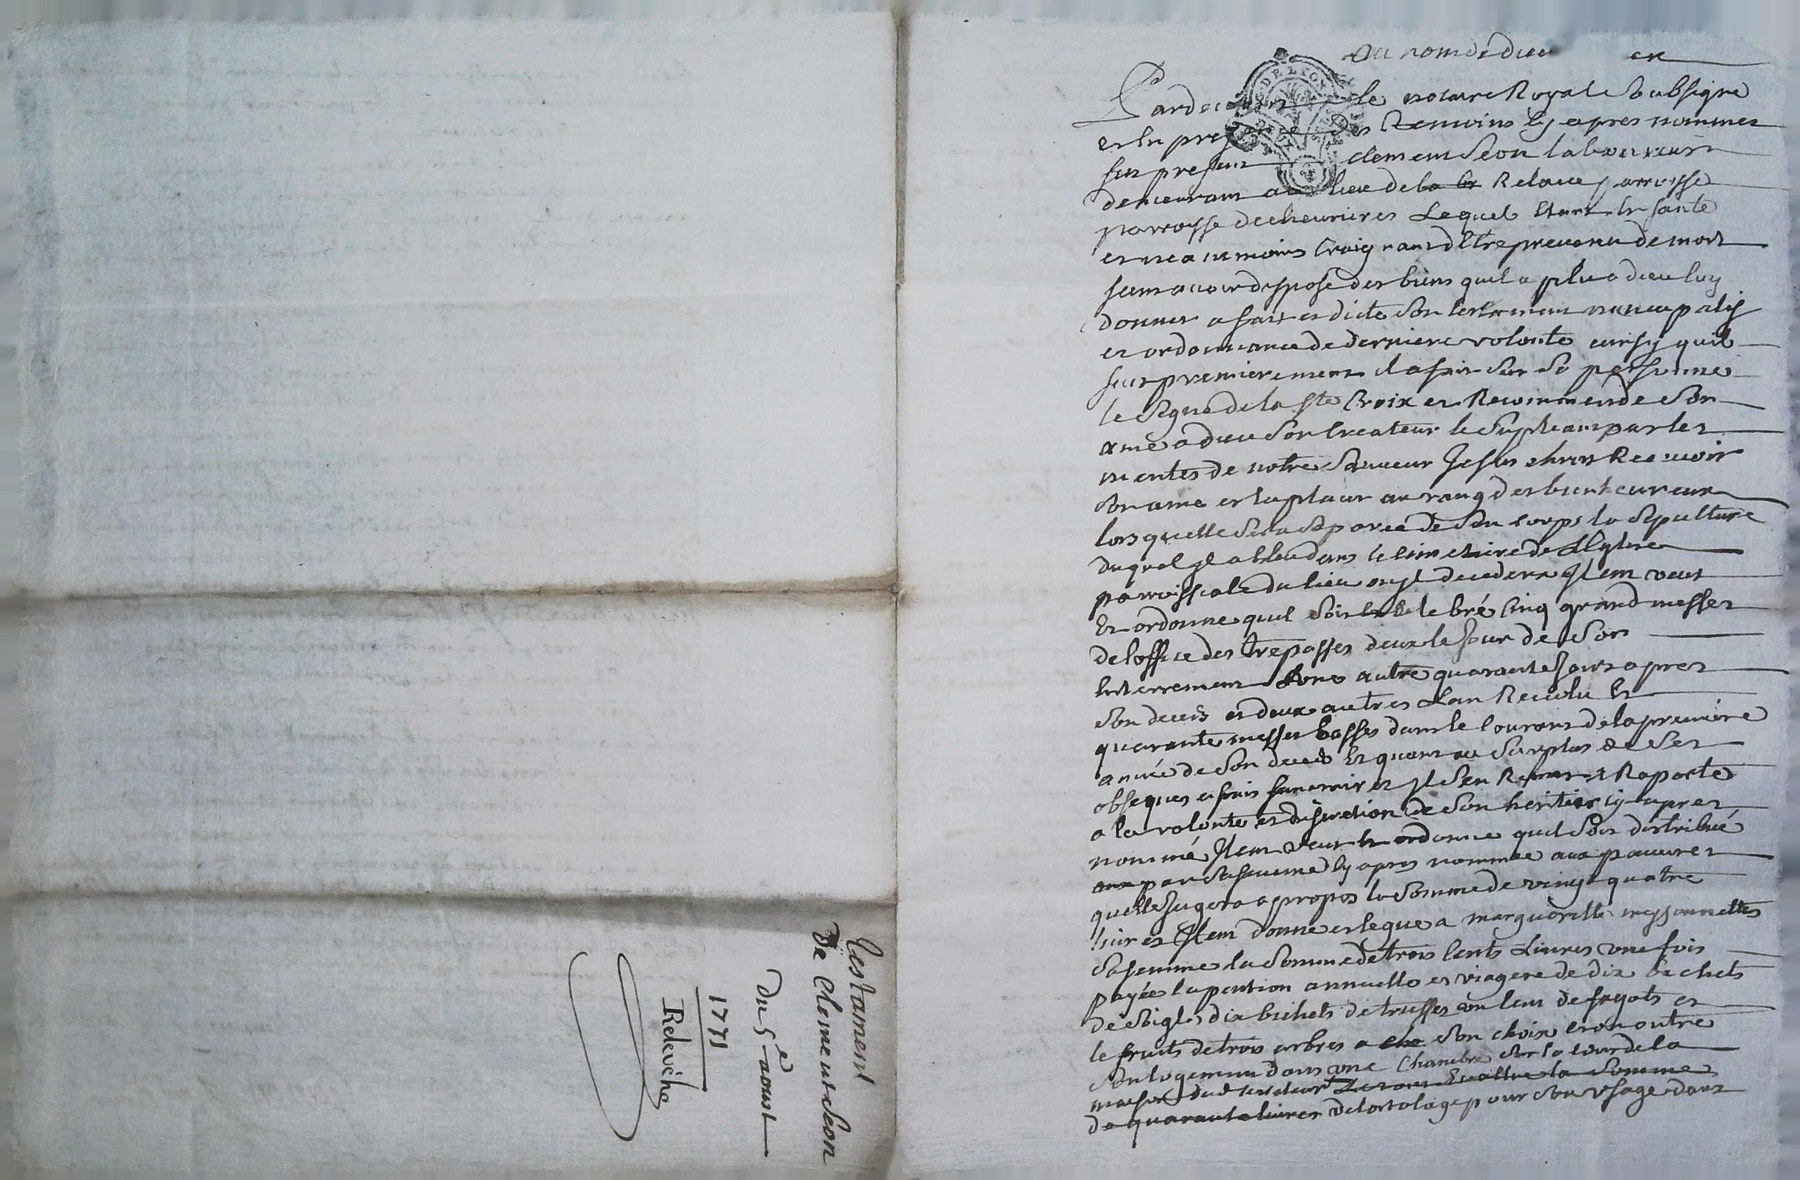 Testament
De Clement Seon
Du 5e aoust
1771
Relevéha
au nom de dieu
Pardevant le notaire Royale Soubsigne
et En pres des Temoins Cy apres nommes
fut presant clement Seon laboureur
demeurant au lieu de la Relave parroisse
parroysse de chevrieres Lequel Etant En sante
et neanmoins Craignant d'Etre prevenu de mort
sans avoir dispose des biens quil a plu a dieu luy
donner a fait et dicte Son testament nuncupatif
et ordonnance de derniere volonte ainsy quil
suit premierement il a fait Sur Sa personne
le Signe de la Ste Croix et Recommende Son
ame a dieu Son Createur le Supliant par les
merites de notre Sauveur Jesus christ Recevoir
Son ame et la placer au rang des bienheureux
lors quelle Sera Separée de Son corps la Sepulture
duquel Il a Eleu dans le cimetiere de L'Eglise
paroissiale du lieu ou Il decedera Item veut
Et ordonne quil Soit celebré Cinq grand messes
de loffice des Trepassés deux le Jour de Son
Enterrement une autre quarante Jours apres
Son deces et deux autres L'an Revolu Et
quarante messes basses dans le courant de la premiere
année de Son deces Et quant au Surplus de Ses
obseques et frais funeraires Il Sen Remet et Raporte
a la volonte et discretion de Son heritier cy apres
nommé Item Veut Et ordonne quil Soit distribué
par Sa femme Cy apres nommée aux pauvres
quelle Jugera a propos la Somme de vingt quatre
livres Item donne et legue a margueritte meyssonnettes
Sa femme la Somme de trois Cents Livres une fois
payée la pention annuelle et viagere de dix bichets
de Seigle dix bichets de truffes un cent de fagots et
le fruits de trois arbres a Son choix et en outre
Son logement dans une Chambre Sur la cour de la
maison dud testateur la Somme
de quarante livres de lortolage pour Son usage dans